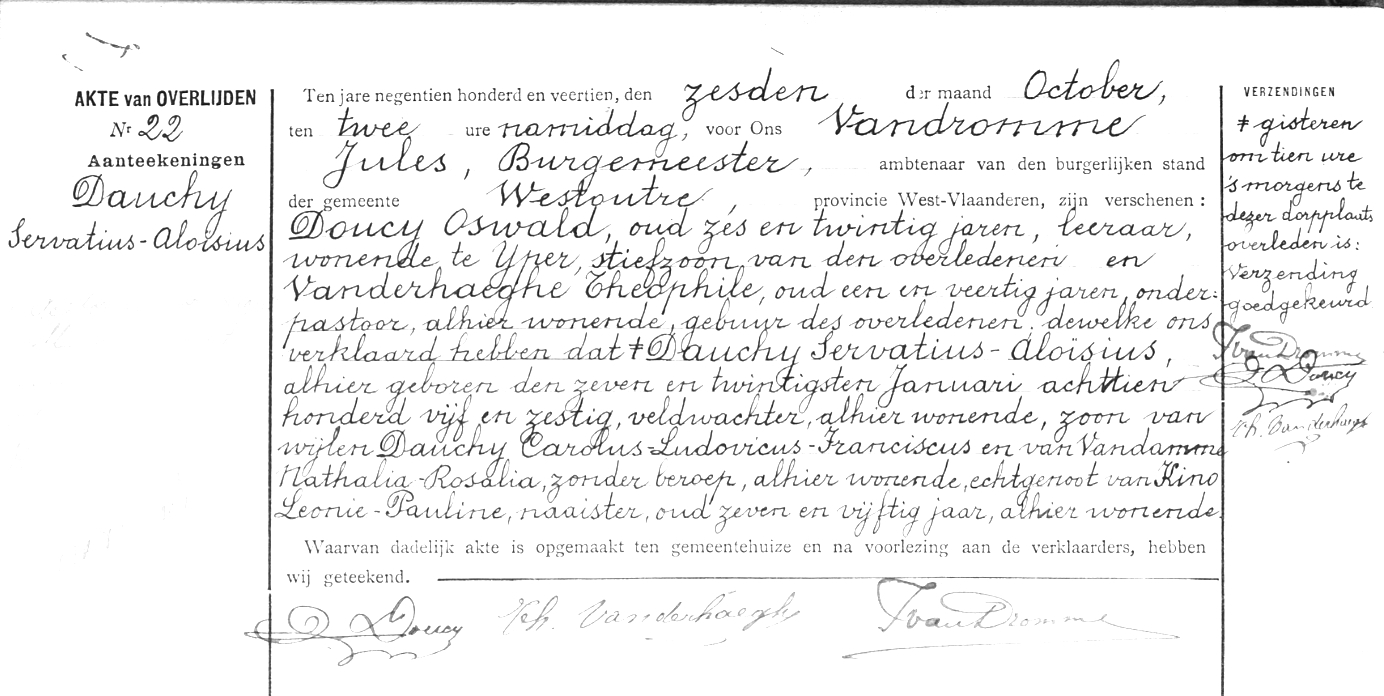 AKTE van OVERLIJDEN
Nr 22
Aanteekeningen
Dauchy
Servatius-Aloïsius
Ten jare negentien honderd en veertien, den zesden der maand October,
ten twee ure namiddag, voor Ons Vandromme
Jules, Burgemeester, ambtenaar van den burgerlijken stand
der gemeente Westoutre, provincie West-Vlaanderen, zijn verschenen :
Doucy Oswald, oud zés en twintig jaren, leeraar,
wonende te Yper, stiefzoon van den overledenen en
Vanderhaeghe Theóphile, oud een en veertig jaren, onder:
pastoor, alhier wonende, gebuur des overledenen, dewelke ons
verklaard hebben dat ‡ Dauchy Servatius-Aloïsius,
alhier geboren den zeven en twintigsten Januari achttien
honderd vijf en zestig, veldwachter, alhier wonende, zoon van
wijlen Dauchy Carolus-Ludovicus-Franciscus en van Vandamme
Nathalia-Rosalia, zonder beroep, alhier wonende, echtgenoot van Kino
Leonie-Pauline, naaister, oud zeven en vijftig jaar, alhier wonende.
Waarvan dadelijk akte is opgemaakt ten gemeentehuize en na voorlezing aan de verklaarders, hebben
wij geteekend.
O. Doucy Th. Vanderhaeghe J vanDromme
VERZENDINGEN
‡ gisteren
om tien ure
's morgens te
dezer dorpplaats
overleden is:
Verzending
goedgekeurd
J vanDromme
O. Doucy
Th. Vanderhaeghe